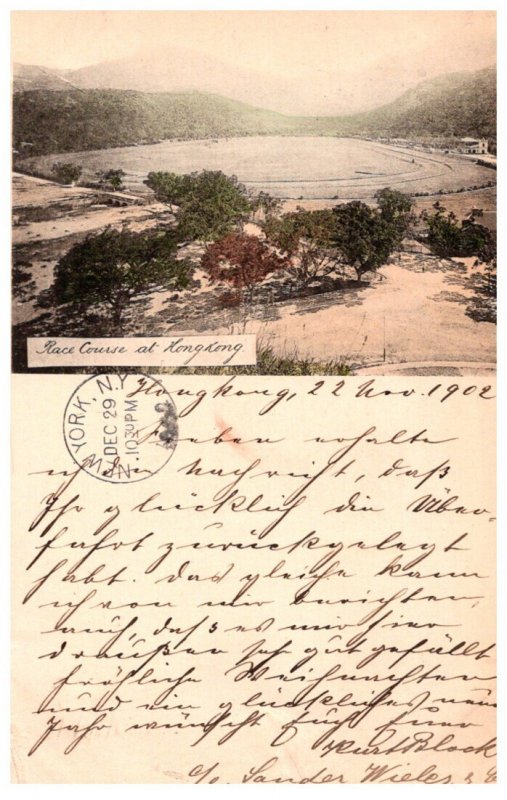 Race Course at Hongkong
Hongkong, 22 Nov. 1902
YORK, N.Y.
DEC 29
10 30 PM
Soeben erhalte
ich die Nachricht, daß
Ihr glücklich die Über-
fahrt zurückgelegt
habt. Das gleiche kann
ich von mir berichten,
auch, daß es mir hier
draußen sehr gut gefällt
fröhliche Weihnachten
und ein glückliches neues
Jahr wünscht Euch Euer
Kurt Block
c/o Sander Wieler &